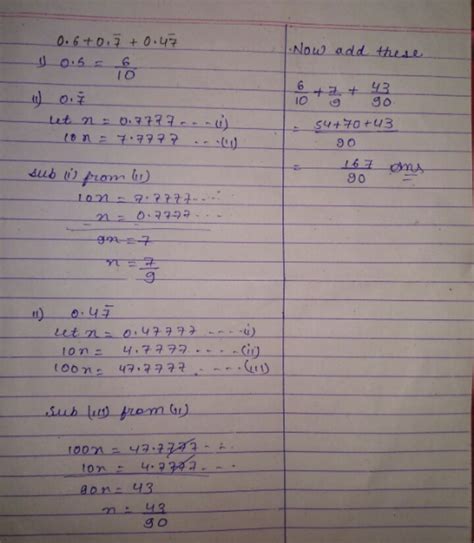 0.6+0.7̄ + 0.47̄
i) 0.6 = 6/10
ii) 0.7̄
let n = 0.7777 ....(i)
10n = 7.7777 ....(ii)
sub (i) from (ii)
10n = 7.7777....
n = 0.7777....
9n = 7
n = 7/9
ii) 0.47̄
let n = 0.47777 ....(i)
10n = 4.7777 ....(ii)
100n = 47.7777 ....(iii)
sub (iii) from (ii)
100n = 47.7777...
10n = 4.7777...
90n = 43
n = 43/90
Now add these
6/10 + 7/9 + 43/90
= 54+70+43/90
= 167/90 ans